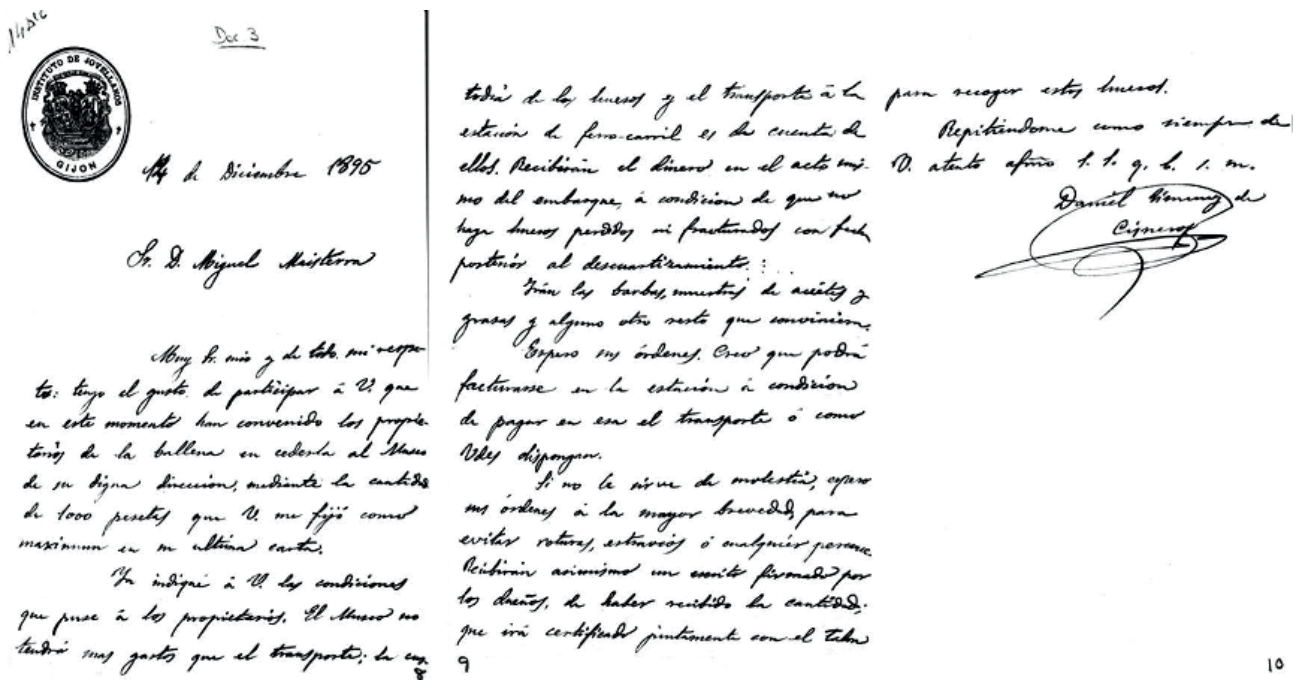 14 Dic
Doc. 3
INSTITUTO DE JOVELLANOS
GIJON
14 de Diciembre 1895
Sr. D. Miguel Maisterra
Muy Sr. mio y de todo mi respe-
to: tengo el gusto de participar á V. que
en este momento han convenido los propie-
tarios de la ballena en cederla al Museo
de su digna direccion, mediante la cantidad
de 1000 pesetas que V. me fijó como
maximum en su ultima carta.
Ya indiqué á V. las condiciones
que puse á los propietarios. El Museo no
tendrá mas gastos que el transporte; la cus-
8
todia de los huesos y el transporte á la
estación de ferro-carril es de cuenta de
ellos. Recibirán el dinero en el acto mis-
mo del embarque, á condicion de que no
haya huesos perdidos ni fracturados con fecha
posterior al descuartizamiento.
Irán las barbas, muestras de aceites y
grasas y alguno otro resto que conviniera.
Espero sus órdenes. Creo que podrá
facturarse en la estación á condicion
de pagar en esa el transporte ó como
Vdes dispongan.
Si no le sirve de molestia, espero
sus órdenes á la mayor brevedad, para
evitar roturas, estravios ó cualquier percance.
Recibirán asimismo un escrito firmado por
los dueños, de haber recibido la cantidad;
que irá certificado juntamente con el talon
9
para recoger estos huesos.
Repitiendome como siempre de
V. atento afmo s. s. q. b. s. m.
Daniel Gimenez de
Cisneros
10